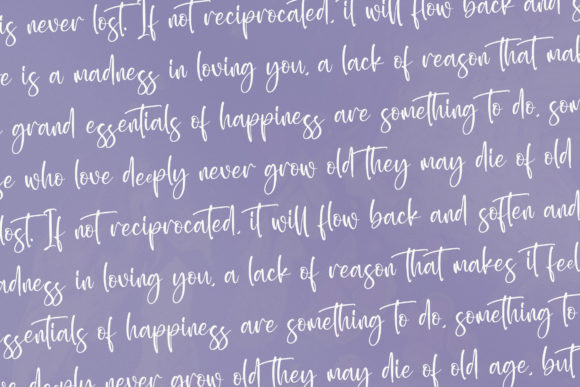 is never lost. If not reciprocated, it will flow back and s
e is a madness in loving you, a lack of reason that mak
grand essentials of happiness are something to do, som
e who love deeply never grow old they may die of old
lost. If not reciprocated, it will flow back and soften and
adness in loving you, a lack of reason that makes it feel
ssentials of happiness are something to do, something to
e deeply never grow old they may die of old age, but